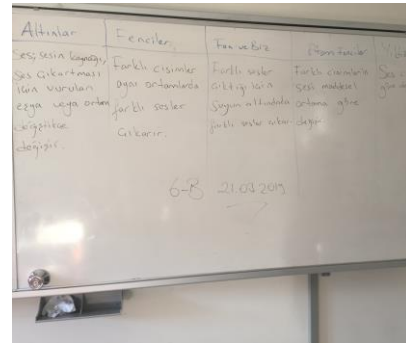 Altınlar
Ses; sesin kaynağı,
Ses çıkartması
için vurulan
eşya veya ortam
değiştikçe
değişir.
Fenciler
Farklı cisimler
aynı ortamlarda
farklı sesler
çıkarır.
Fen ve Biz
Farklı sesler
çıktığı için
Suyun altındada
farklı sesler çıkar
Farklı cisimlerin
sesi maddesel
ortama göre
değişir
Ses
6-B 21.03.2019